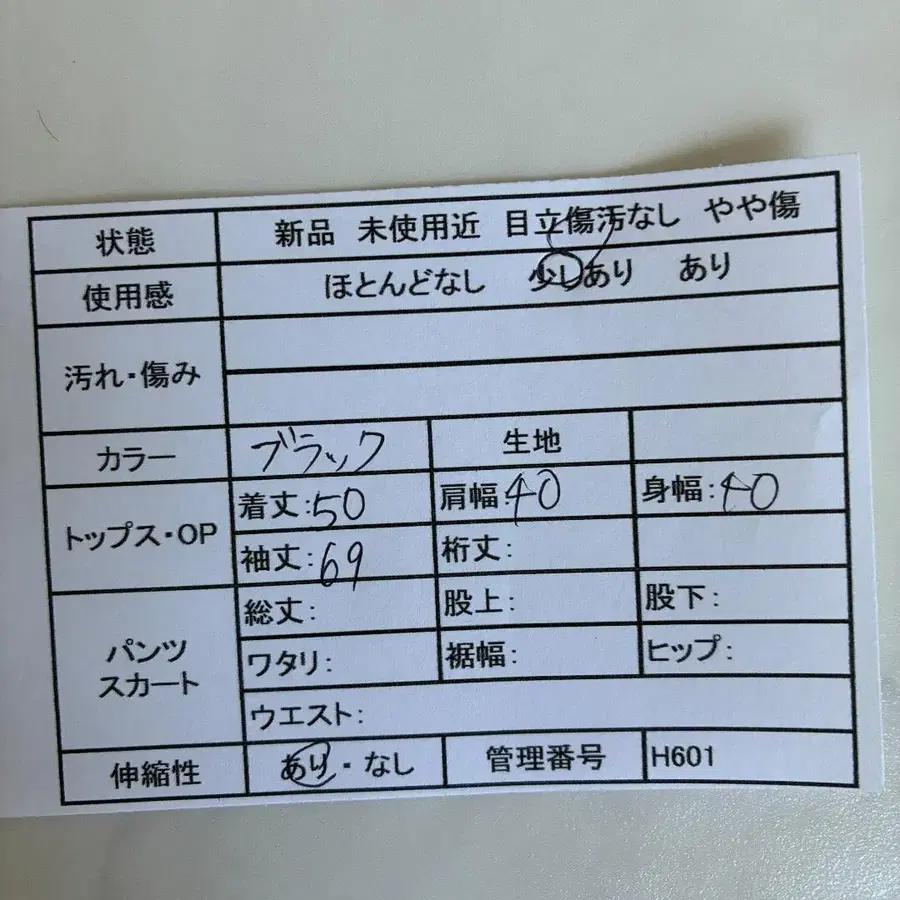 状態 新品 未使用近 目立傷汚なし やや傷
使用感 ほとんどなし 少しあり あり
汚れ・傷み
カラー ブラック 生地
トップス・OP 着丈:50 肩幅:40 身幅:40
袖丈:69 裄丈:
パンツ スカート 総丈: 股上: 股下:
ワタリ: 裾幅: ヒップ:
ウエスト:
伸縮性 あり・なし 管理番号 H601